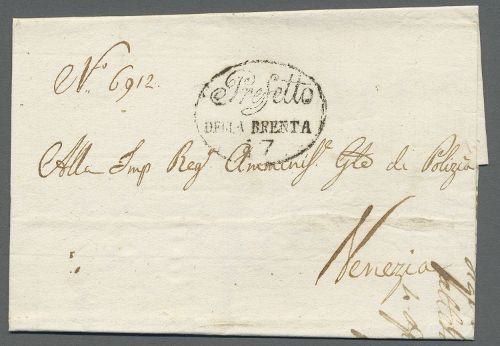 N.o 6912.
Prefetto
DELLA BRENTA
7
Alla Imp Reg.a Amminis.e Gle di Polizia
Venezia